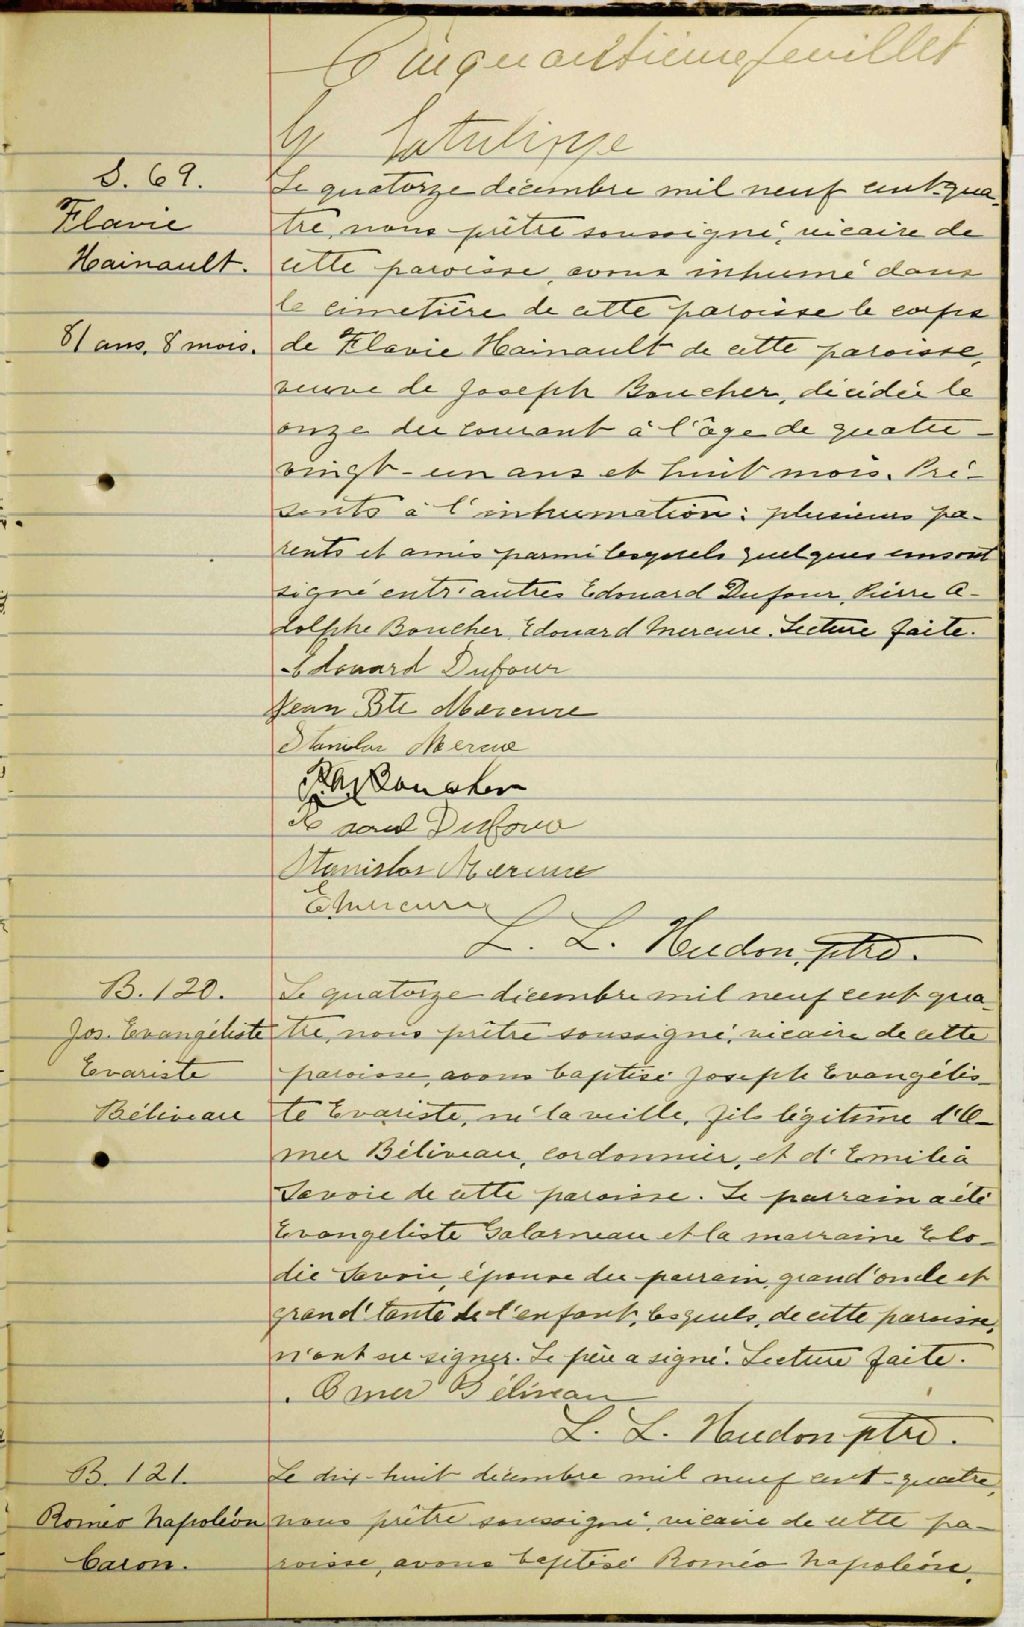 Cinquantième feuillet
G Latulippe
S. 69.
Flavie
Hainault.
81 ans, 8 mois.
Le quatorze décembre mil neuf cent-qua-
tre, nous prêtre soussigné, vicaire de
cette paroisse, avons inhumé dans
le cimetière de cette paroisse le corps
de Flavie Hainault de cette paroisse,
veuve de Joseph Boucher, décédée le
onze du courant à l'âge de quatre-
vingt-un ans et huit mois. Pré-
sents à l'inhumation: plusieurs pa-
rents et amis parmi lesquels quelques uns ont
signé entr'autres Edouard Dufour, Pierre A-
dolphe Boucher, Edouard Mercure. Lecture faite.
Edouard Dufour
Jean Bte Mercure
Stanislas Mercure
Boucher
Dufour
Stanislas Mercure
E Mercure
L. L. Hudon, ptre.
B. 120.
Jos. Evangéliste
Evariste
Béliveau
Le quatorze décembre mil neuf cent qua-
tre, nous prêtre soussigné, vicaire de cette
paroisse, avons baptisé Joseph Evangélis-
te Evariste, né la veille, fils légitime d'O-
mer Béliveau, cordonnier, et d'Emilia
Savoie de cette paroisse. Le parrain a été
Evangeliste Galarneau et la marraine Elo-
die Savoie, épouse du parrain, grand'oncle et
grand'tante de l'enfant, lesquels, de cette paroisse,
n'ont su signer. Le père a signé. Lecture faite.
Omer Béliveau
L. L. Hudon ptre.
B. 121.
Roméo Napoléon
Caron.
Le dix-huit décembre mil neuf cent-quatre,
nous prêtre soussigné, vicaire de cette pa-
roisse, avons baptisé Roméo Napoléon,